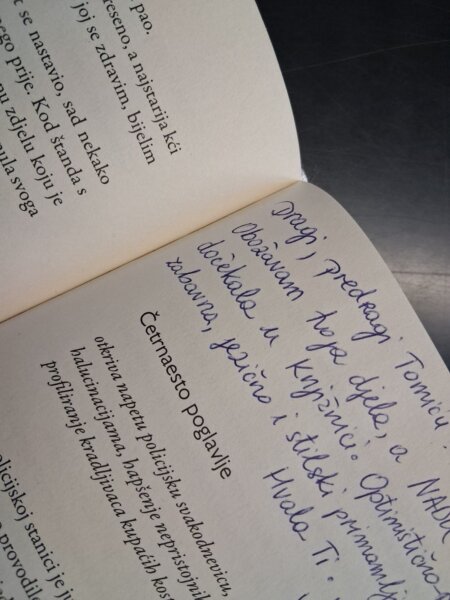 pao.
reseno, a najstarija kći
joj se zdravim, bijelim
t se nastavio, sad nekako
nego prije. Kod štanda s
pu zdjelu koju je
nula svoga
Dragi, predragi Tomiću.
Obožavam tvoja djela, a NAOU
dočekala u knjižnici. Optimistično
zabavna, jezično i stilski primamlj
Hvala Ti.
Četrnaesto poglavlje
otkriva napetu policijsku svakodnevicu,
halucinacijama, hapšenje nepristojnih
profiliranje kradljivaca kupaćih kost
olicijskoj stanici je j
a provodile